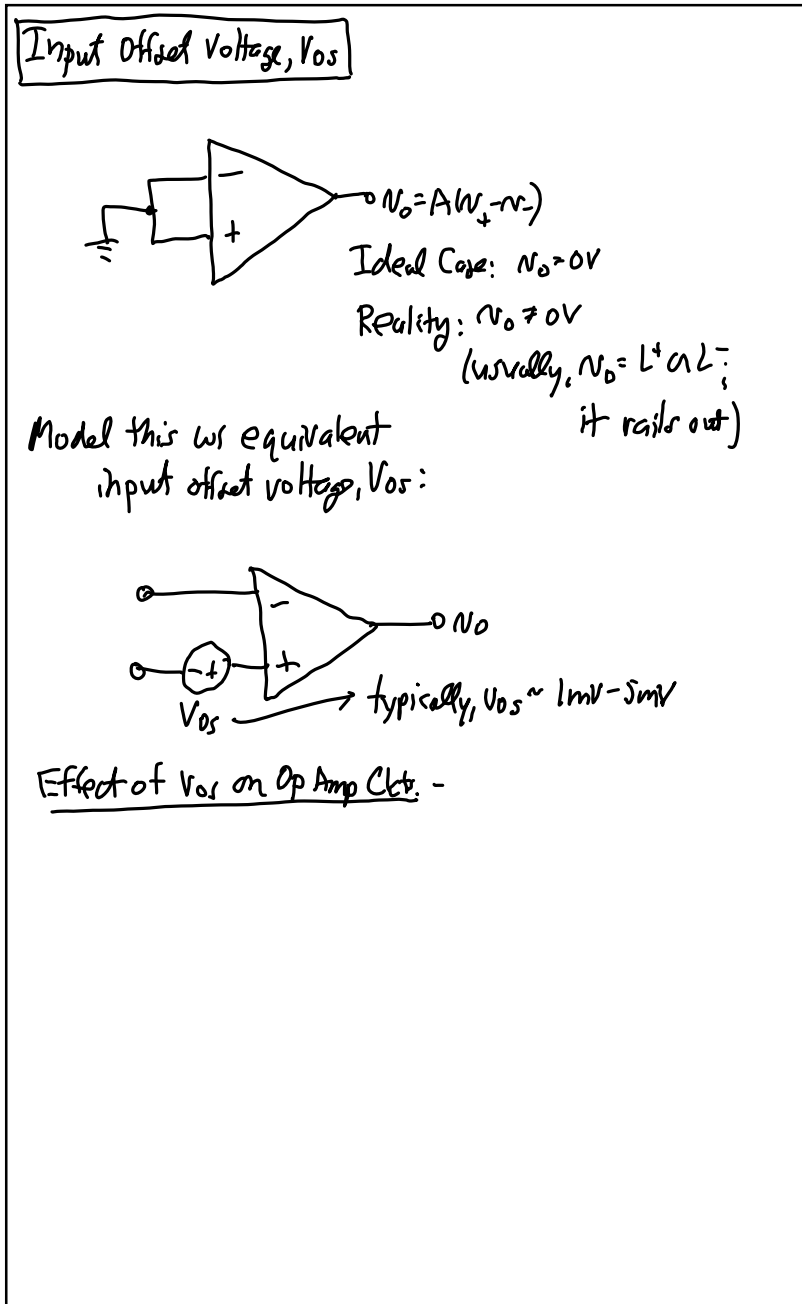 Input Offset Voltage, Vos
−
+
vo = A(v+ - v-)
Ideal Case: vo = 0V
Reality: vo ≠ 0V
(usually, vo = L+ or L-;
it rails out)
Model this w/ equivalent
input offset voltage, Vos:
−
- +
+
vo
Vos → typically, Vos ~ 1mV - 5mV
Effect of Vos on Op Amp Ckts. -